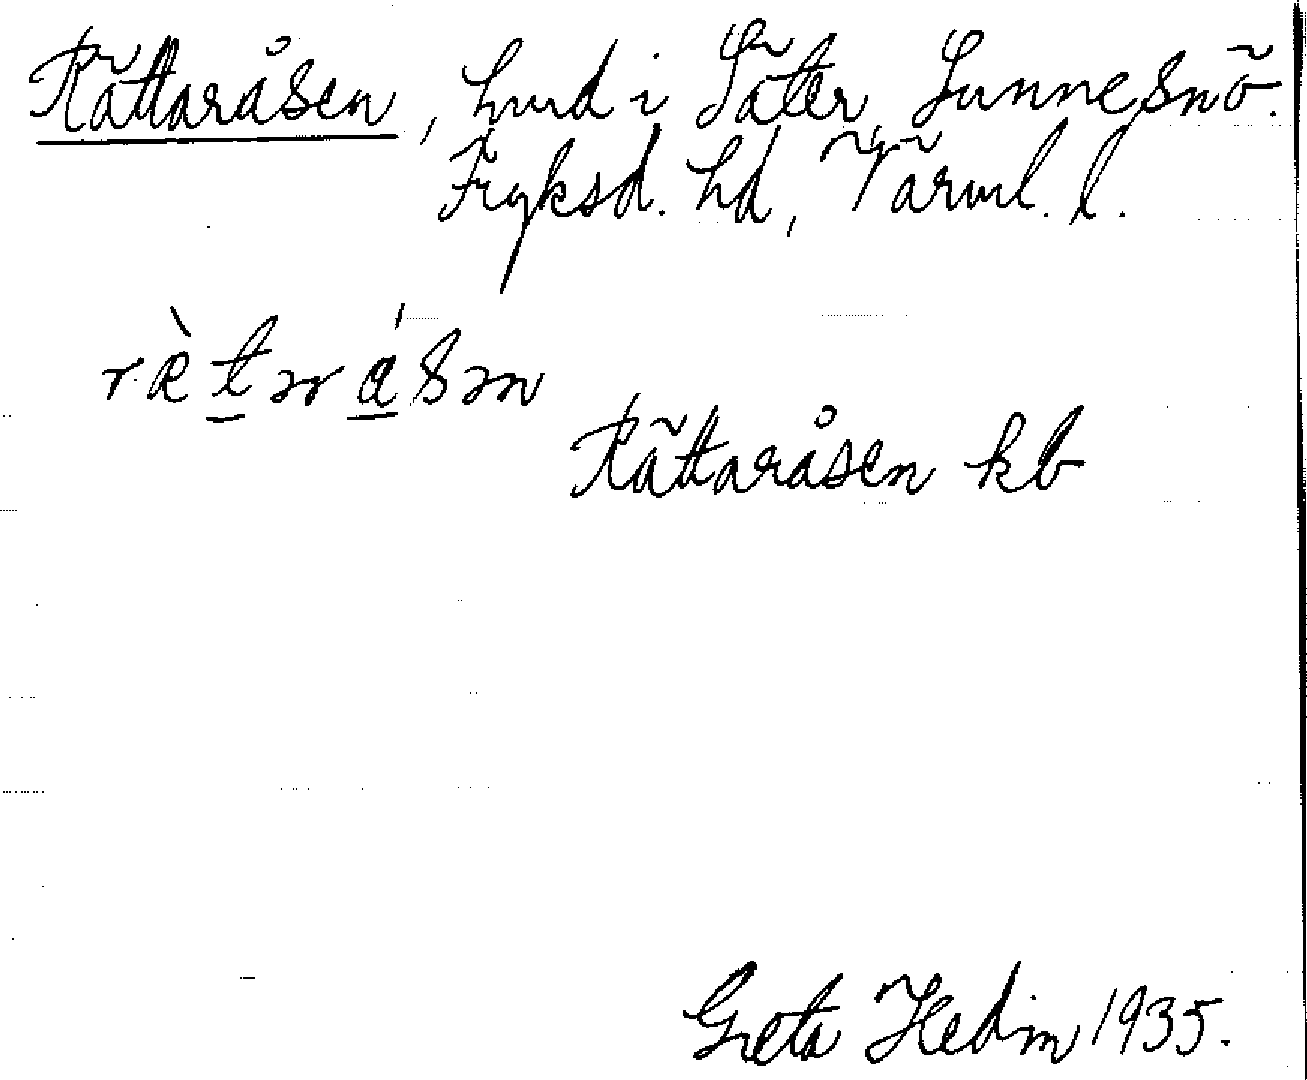 Rättaråsen, hmd i Säter, Sunne snö.
Fryksd. hd, Värml. l.
Rättaråsen kb
Greta Hedin 1935.